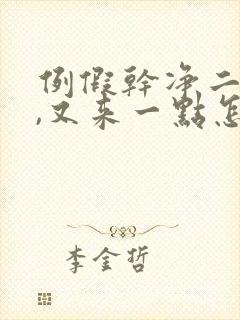 例假幹净二
,又来一點怎
李金哲